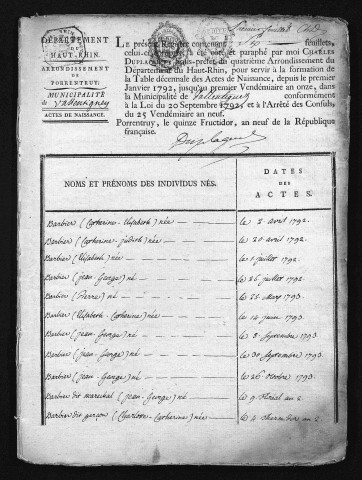 DÉPARTEMENT
DU
HAUT-RHIN.
ARRONDISSEMENT
DE
PORRENTRUY.
MUNICIPALITÉ
de Valentigney
ACTES DE NAISSANCE.
Premier feuillet
LE présent Registre contenant feuillets,
celui-ci compris, a été coté et paraphé par moi CHARLES
DUPLAQUET, Sous-préfet du quatrième Arrondissement du
Département du Haut-Rhin, pour servir à la formation de
la Table décennale des Actes de Naissance, depuis le premier
Janvier 1792, jusqu'au premier Vendémiaire an onze, dans
la Municipalité de Valentigney conformément
à la Loi du 20 Septembre 1792, et à l'Arrêté des Consuls,
du 25 Vendémiaire an neuf.
Porrentruy, le quinze Fructidor, an neuf de la République
française.
Duplaquet
NOMS ET PRÉNOMS DES INDIVIDUS NÉS.
DATES
DES
ACTES.
Barbier (Catherine-Elisabeth) née le 2 avril 1792.
Barbier (Catherine-Judith) née le 20 avril 1792.
Barbier (Elisabeth) née le 1 juillet 1792.
Barbier (Jean-George) né le 26 juillet 1792.
Barbier (Pierre) né mars 1793.
Barbier (Elisabeth-Catherine) née le 14 juin 1793.
Barbier (Jean-George) né le 8 Septembre 1793
Barbier (Jean-George) né le 30 Septembre 1793.
Barbier (Jean-George) né le 26 octobre 1793.
Barbier dit maréchal (Jean-George) né le 9 floréal an 2.
Barbier dit garçon (Charlotte-Catherine) née le 4 thermidor an 2.